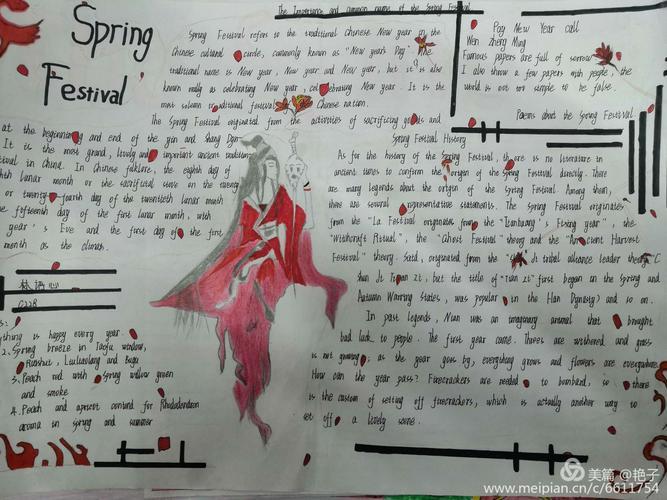 Spring
Festival
The Importance and common name of the Spring Festival
Spring Festival refers to the traditional Chinese New Year in the
Chinese cultural circle, commonly known as "New year's Day" The
traditional name is New year, New year and New year, but it is also
known orally as celebrating New year, celebrating New year. It is the
most solemn traditional festival Chinese nation.
The Spring Festival originated from the activities of sacrificing gods and
at the beginning and end of the yin and Shang Dyn
It is the most grand, lively and important ancient tradition
tival in China. In Chinese folklore, the eighth day of
th lunar month or the sacrificial stove on the twenty
or twenty fourth day of the twentieth lunar month
the fifteenth day of the first lunar month, with
year's Eve and the first day of the first
month as the climax.
0228
s:
ything is happy every year.
2. Spring breeze in Taofu window,
and smoke
3. Peach red with Spring willow green
4. Peach and apricot contend for Rhododendron
aroma in spring and summer
Pay New Year call
Wen Zheng Ming
Famous papers are full of sorrow
I also throw a few papers with people, the
world is not too simple to be false.
Poems about the Spring Festival
Spring Festival History
As for the history of the Spring Festival, there is no literature in
ancient times to confirm the origin of the Spring Festival directly. There
are many legends about the origin of the spring Festival. Among them,
there are several representative statements. The Spring Festival originates
from the "La Festival originates from the "Tianhuang's Fixing year", the
"Witchcraft Ritual", the "Ghost Festival" theory and the "Ancient Harvest
Festival" theory. Said, originated from the tribal alliance leader
but the title of first began in the Spring and
Autumn Warring States, was popular in the Han Dynasty) and so on.
In past legends, Nian was an imaginary animal that brought
bad luck to people. The first year came. Threes are withered and grass
is not growing; as the year goes by, everything grows and flowers are everywhere.
How can the year pass? Firecrackers are needed to bombard, so there
is the custom of setting off firecrackers, which is actually another way to
set off a lively scene.
美篇 @艳子
www.meipian.cn/c/6611754